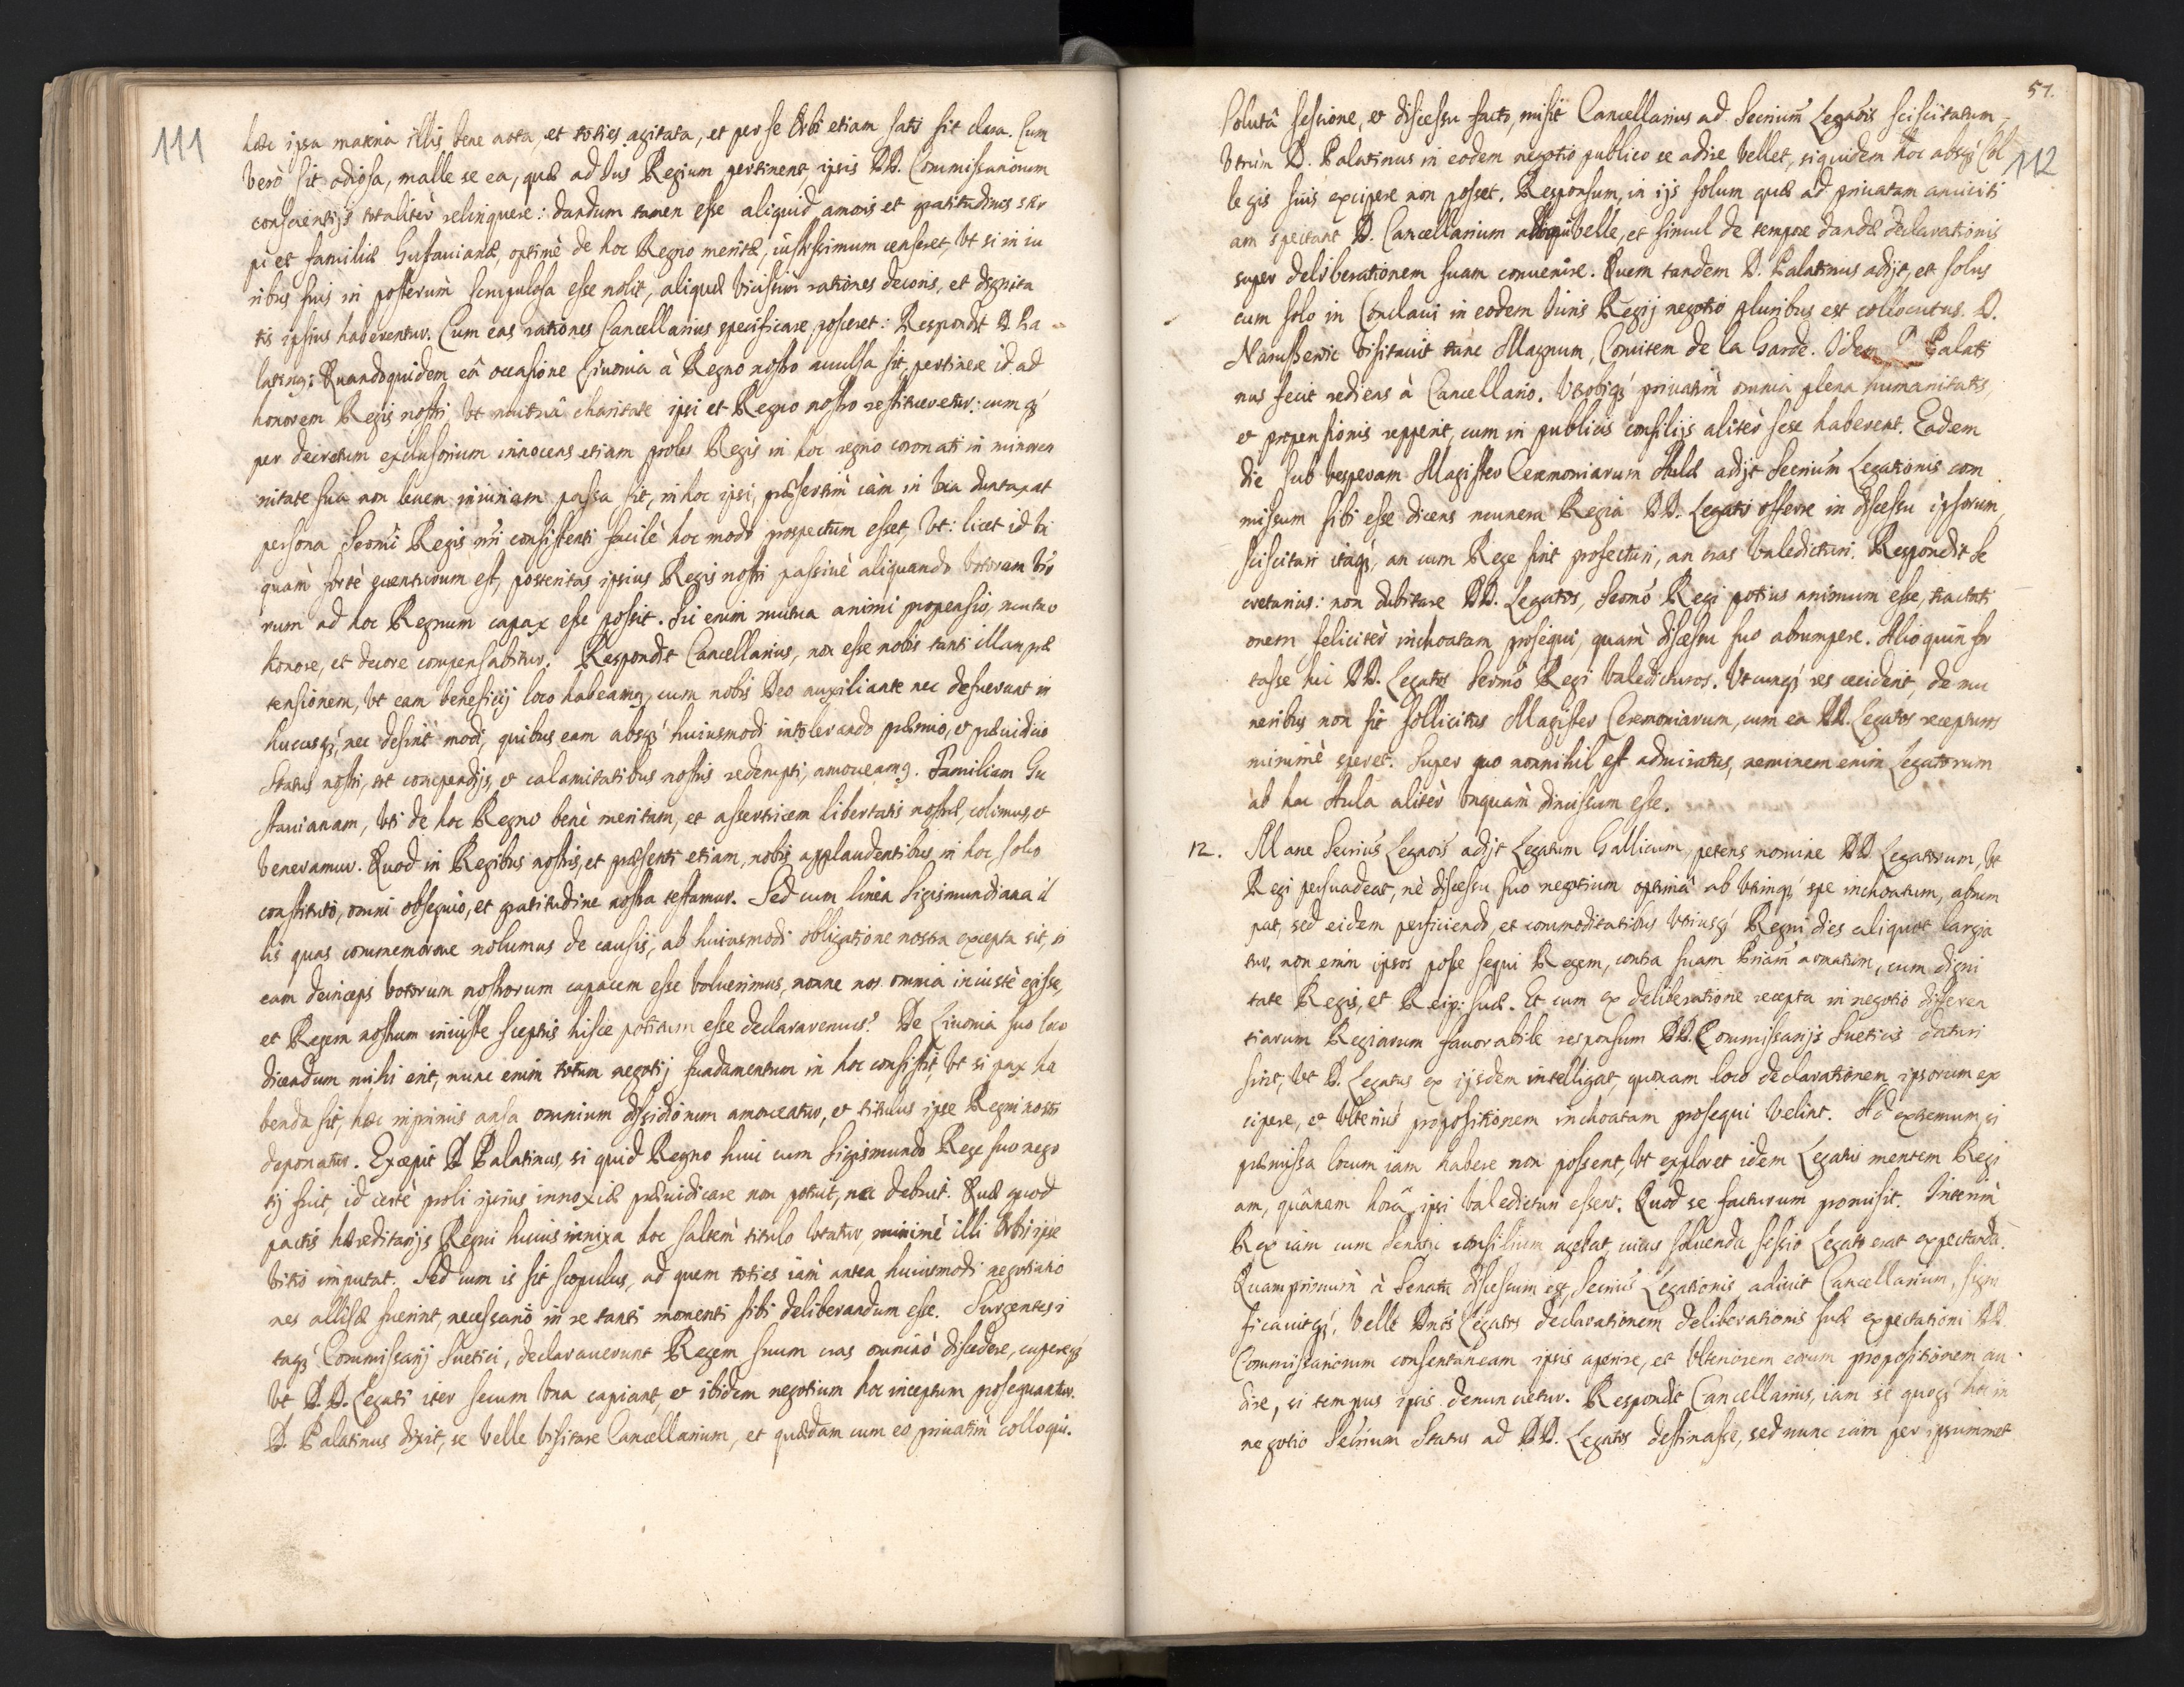 111
hæc ipsa materia illis bene acta, et toties agitata, et per se Orbi etiam satis sit clara. Cum
verò sit odiosa, malle se ea, quæ ad Jus Regium pertinent, ipsis DD. Commissariorum
conscientijs totaliter relinquere: dandum tamen esse aliquid amoris et gratitudinis stir
pi et familiæ Gustavianæ, optimè de hoc Regno meritæ, iustissimum censeret, Vt si in iu
ribus suis in posterum scrupulosa esse nolit, aliquæ vicissim rationes decoris, et dignita
tis ipsius haberentur. Cum eas rationes Cancellarius specificare posceret: Respondit D. Pa
latinus: Quandoquidem eâ occasione Livonia à Regno nostro avulsa sit, pertinere id ad
honorem Regis nostri Vt mutuâ charitate ipsi et Regno nostro restitueretur: cumq́
per decretum exclusorium innocens etiam proles Regis in hoc regno coronati in minoren
nitate sua non levem iniuriam passa sit, in hoc ipsi, præsertim iàm in vna duntaxat
persona Sermi Regis nri consistenti facilè hoc modo prospectum esset, Vt: licet id vn
quàm fortè euenturum est, posteritas ipsius Regis nostri passivè aliquando votorum vro
rum ad hoc Regnum capax esse possit. Sic enim mutua animi propensio, mutuo
honore, et decore compensabitur. Respondit Cancellarius, non esse nobis tanti illam præ
tensionem, Vt eam beneficij loco habeamus, cum nobis Deo auxiliante nec defuerunt in
hucusq́, nec desint modi, quibus eam absq́ huiusmodi intolerando præmio, et præiudicio
Status nostri, tot compendijs, et calamitatibus nostris redempti, amoueamus. Familiam Gu
stavianam, Vti de hoc Regno benè meritam, et assertricem libertatis nostræ, colimus, et
veneramur. Quod in Regibus nostris, et præsenti etiam, nobis applaudentibus, in hoc solio
constituto, omni obsequio, et gratitudine nostra testamur. Sed cum linea Sigismundiana il
lis quas commemorare nolumus de causis, ab huiusmodi obligatione nostra excepta sit, si
eam deinceps votorum nostrorum capacem esse voluerimus, nonne nos omnia iniustè egisse,
et Regem nostrum iniuste sceptris hisce potitum esse declararemus? De Livonia suo loco
dicendum mihi erit, nunc enim totum negotij fundamentum in hoc consistit, Vt si pax ha
benda sit, hæc inprimis ansa omnium dissidiorum amoueatur, et titulus ipse Regni nostri
deponatur. Excepit D. Palatinus, si quid Regno huic cum Sigismundo Rege suo nego
tij fuit, id certè proli ipsius innoxiæ præiudicare non potuit, nec debuit. Quæ quod
pactis hæreditarijs Regni huius innixa hoc saltem titulo vtatur, minimè illi Orbis ipse
vitio imputat. Sed cum is sit scopulus, ad quem toties iàm antea huiusmodi negotiatio
nes allisæ fuerint, necessariò in re tanti momenti sibi deliberandum esse. Surgentes i
taq́ Commissarij Suetici, declaraverunt Regem suum cras omninò discedere, cupereq́
Vt D.D. Legati iter secum vna capiant, et ibidem negotium hoc inceptum prosequantur.
D. Palatinus dixit, se velle visitare Cancellarium, et quædam cum eo privatim colloqui.
51.
112
Solutâ sessione, et discessu facto, misit Cancellarius ad Secrium Legaõis sciscitatum
Vtrùm D. Palatinus in eodem negotio publico se adire vellet, siquidem hoc absq́ Col
legis suis excipere non posset. Responsum, in ijs solum quæ ad privatam amiciti
am spectant D. Cancellarium alloqui velle, et simul de tempore dandæ declarationis
super deliberationem suam convenire. Quem tandem D. Palatinus adijt, et solus
cum solo in Conclavi in eodem Juris Regij negotio pluribus est collocutus. D.
Naruszewic visitavit tunc Magnum, Comitem de la Garde. Idem D. Palati
nus fecit rediens à Cancellario. Vtrobiq́ privatim omnia plena humanitatis
et propensionis repperit, cum in publicis consilijs aliter sese haberent. Eadem
die sub vesperam Magister Ceremoniarum Aulæ adijt Secrium Legationis com
missum sibi esse dicens munera Regia DD. Legatis offerre in discessu ipsorum,
sciscitari itaq́, an cum Rege sint profecturi, an cras valedicturi. Respondit Se
cretarius: non dubitare DD. Legatos, Sermo Regi potius animum esse, tractati
onem feliciter inchoatam prosequi, quàm discessu suo abrumpere. Alioquin for
tasse hic DD. Legatos Sermo Regi valedicturos. Vtcunq́ res ceciderit, de mu
neribus non sit sollicitus Magister Ceremoniarum, cum ea DD. Legatos recepturos
minimè speret. Super quo nonnihil est admiratus, neminem enim Legatorum
ab hac Aula aliter vnquàm dimissum esse.
12. Mane Secrius Legaõis adijt Legatum Gallicum, petens nomine DD. Legatorum, Vt
Regi persuadeat, nè discessu suo negotium optimâ ab vtrinq́ spe inchoatum, abrum
pat, sed eidem perficiendo, et commoditatibus vtriusq́ Regni dies aliquot largia
tur, non enim ipsos posse sequi Regem, contra suam Priam armatum, cum digni
tate Regis, et Reip: suæ. Et cum ex deliberatione recepta in negotio differen
tiarum Regiarum favorabile responsum DD. Commissarijs Sueticis daturi
sint, Vt D. Legatus ex ijsdem intelligat, quonam loco declarationem ipsorum ex
cipere, et vlterius propositionem inchoatam prosequi velint. Ad extremum, si
præmissa locum iam habere non possent, Vt exploret idem Legatus mentem Regi
am, quânam horâ ipsi valedicturi essent. Quod se facturum promisit. Interim
Rex iam cum Senatu consilium agebat, cuius solvenda sessio Legato erat expectanda.
Quamprimum à Senatu discessum est, Secrius Legationis adivit Cancellarium, signi
ficavitq́, velle Dnos Legatos declarationem deliberationis suæ expectationi DD.
Commissariorum consentaneam ipsis aperire, et vlteriorem eorum propositionem au
dire, si tempus ipsis denuncietur. Respondit Cancellarius, iam se quoq́ hoc in
negotio Secrium Status ad DD. Legatos destinasse, sed nunc iam per ipsummet